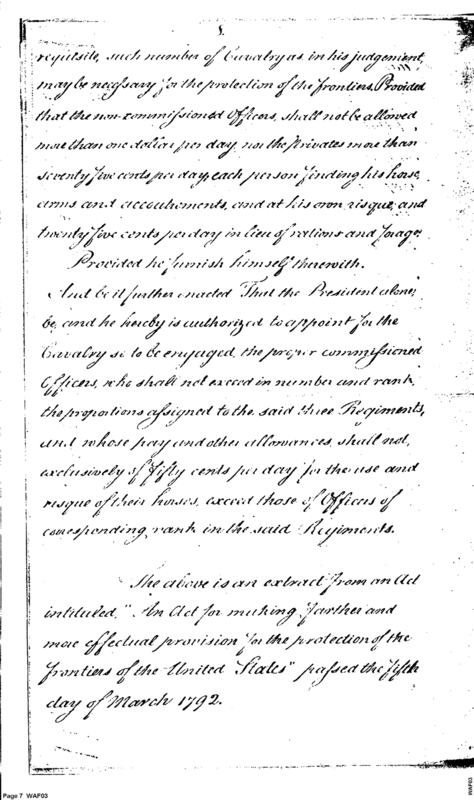 requisite, such number of Cavalry as in his judgement,
may be necessary for the protection of the frontiers, Provided
that the non-commissioned Officers, shall not be allowed
more than one dollar per day, nor the privates more than
seventy five cents per day, each person finding his horse,
arms and accoutrements, and at his own risque, and
twenty five cents per day in lieu of rations and forage,
Provided he furnish himself therewith.
And be it further enacted That the President alone,
be, and he hereby is authorized to appoint for the
Cavalry so to be engaged, the proper commissioned
Officers, who shall not exceed in number and rank,
the proportions assigned to the said three Regiments,
and whose pay and other allowances, shall not,
exclusively of fifty cents per day for the use and
risque of their horses, exceed those of Officers of
corresponding rank in the said Regiments.
The above is an extract from an Act
intituled, "An Act for making farther and
more effectual provision for the protection of the
frontiers of the United States" passed the fifth
day of March 1792.
Page 7 WAF03
WAF03